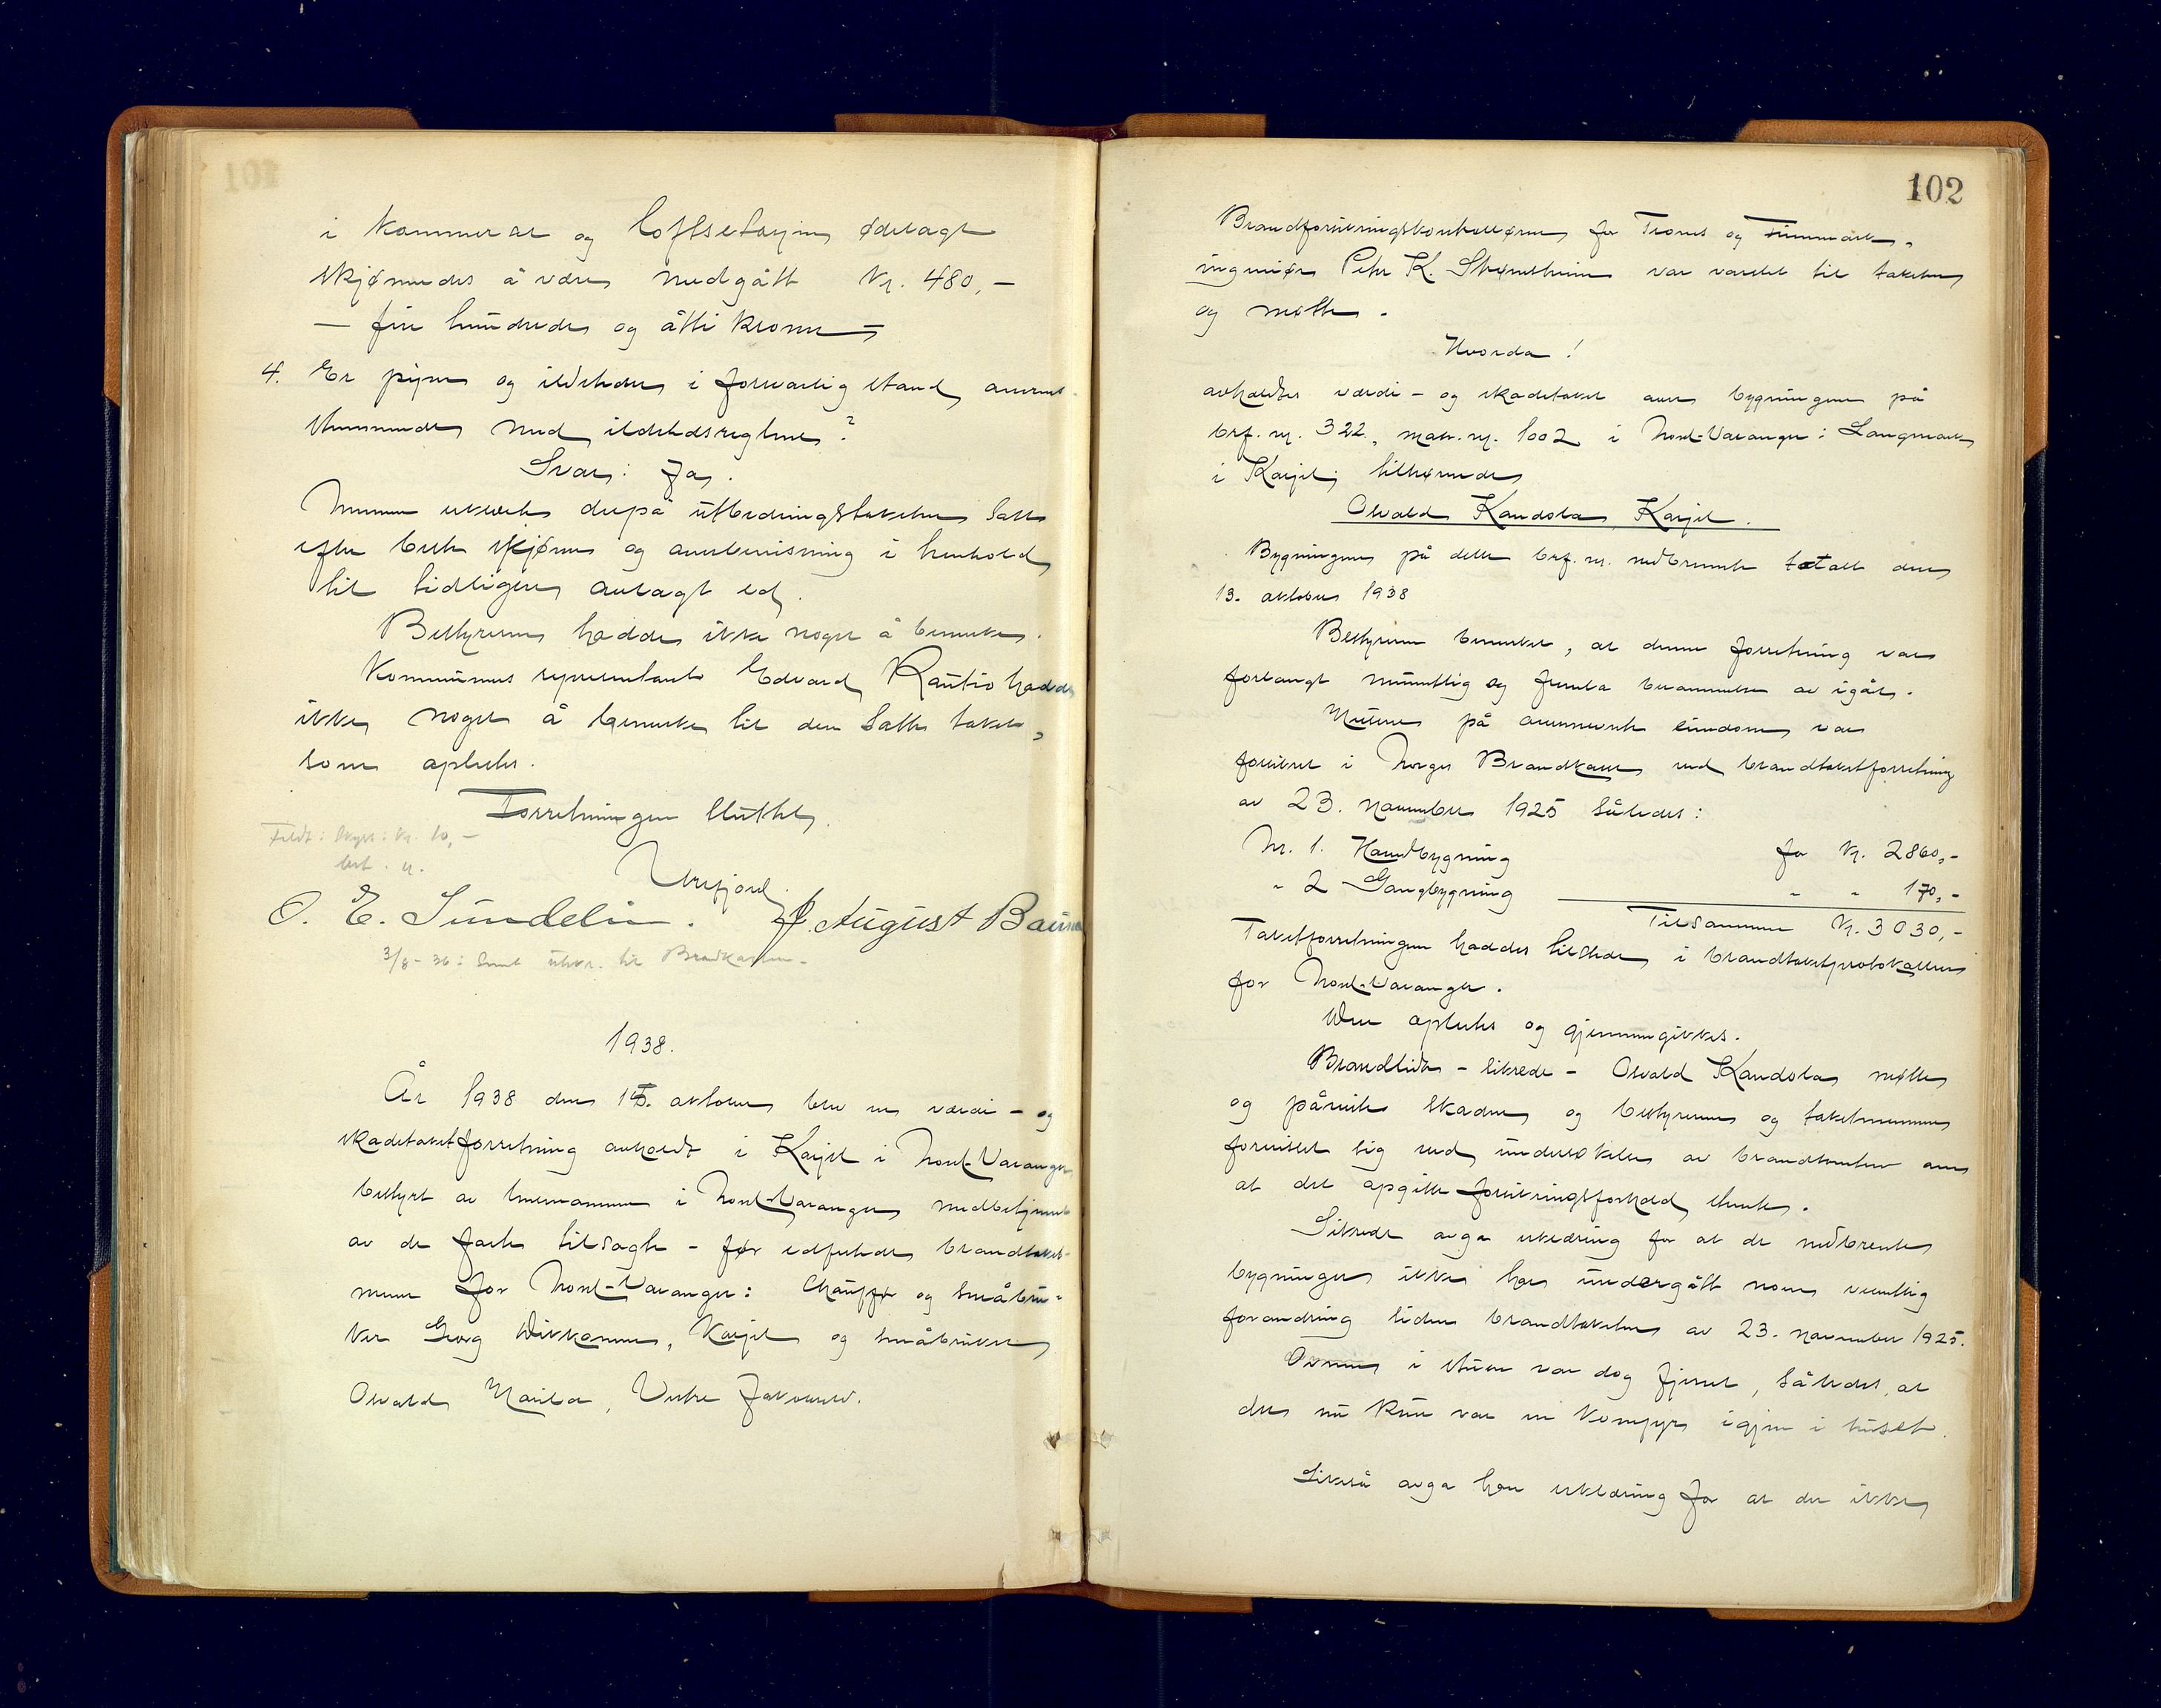 i kammerat og loftsetasjen ødelagt
skjønnedes å være medgått kr. 480,-
— fire hundrede og åtti kroner —
4. Er piper og ildsteder i forsvarlig stand, overens-
stemmende med ildstedsreglene?
Svar: Ja.
Mennene erklærte derpå utbedringstaksten satt
efter beste skjønn og overbevisning i henhold
til tidligere avlagt ed.
Bestyreren hadde ikke noget å bemerke.
Kommunens representant Edvard Rautio hadde
ikke noget å bemerke til den satte takst,
som oplestes.
Forretningen sluttet.
Urefjord.
O. E. Sundelin. J. August Bauna
3/8-36: Sendt utskr. til Brandkassen.
1938.
År 1938 den 15. oktober blev en værdi- og
skadetakstforretning avholdt i Karjel i Nord-Varanger
bestyrt av lensmannen i Nord-Varanger med betjening
av de faste tilsagte - før edfestede brandtakst-
menn for Nord-Varanger: Chauffør og småbru-
ker Georg Wikkonen, Karjel og småbruker
Osvald Marila, Vestre Jakobselv.
102
Brandforsikringskontrolløren for Troms og Finnmark,
ingeniør Peter K. Strømstrein var varslet til taksten
og møtte.
Hvorda!
avholdtes værdi- og skadetakst over bygningene på
brf. nr. 322, matr. nr. 1002 i Nord-Varanger: Langmark
i Karjel, tilhørende
Osvald Kandola, Karjel.
Bygningene på dette brf. nr. nedbrente totalt den
13. oktober 1938
Bestyreren bemerket, at denne forretning var
forlangt muntlig og fremla berammelse av igår.
Husene på ovennevnte eiendom var
forsikret i Norges Brandkasse ved brandtakstforretning
av 23. november 1925 således:
Nr. 1. Hovedbygning for kr. 2860,-
" 2 Gangbygning " " 170,-
Tilsammen kr. 3030,-
Takstforretningen haddes tilstede i brandtakstprotokollen
for Nord-Varanger.
Den oplestes og gjennemgikkes.
Brandlidte - sikrede - Osvald Kandola møtte
og påviste skaden og bestyreren og takstmennene
forvisset sig ved undersøkelse av brandtomten om
at det opgitte forsikringsforhold stemte.
Sikrede avga erklæring for at de nedbrente
bygninger ikke har undergått noen vesentlig
forandring siden brandtaksten av 23. november 1925.
Ovnen i stuen var dog fjernet, således, at
der nu kun var en komfyr igjen i huset.
Likeså avga han erklæring for at der ikke